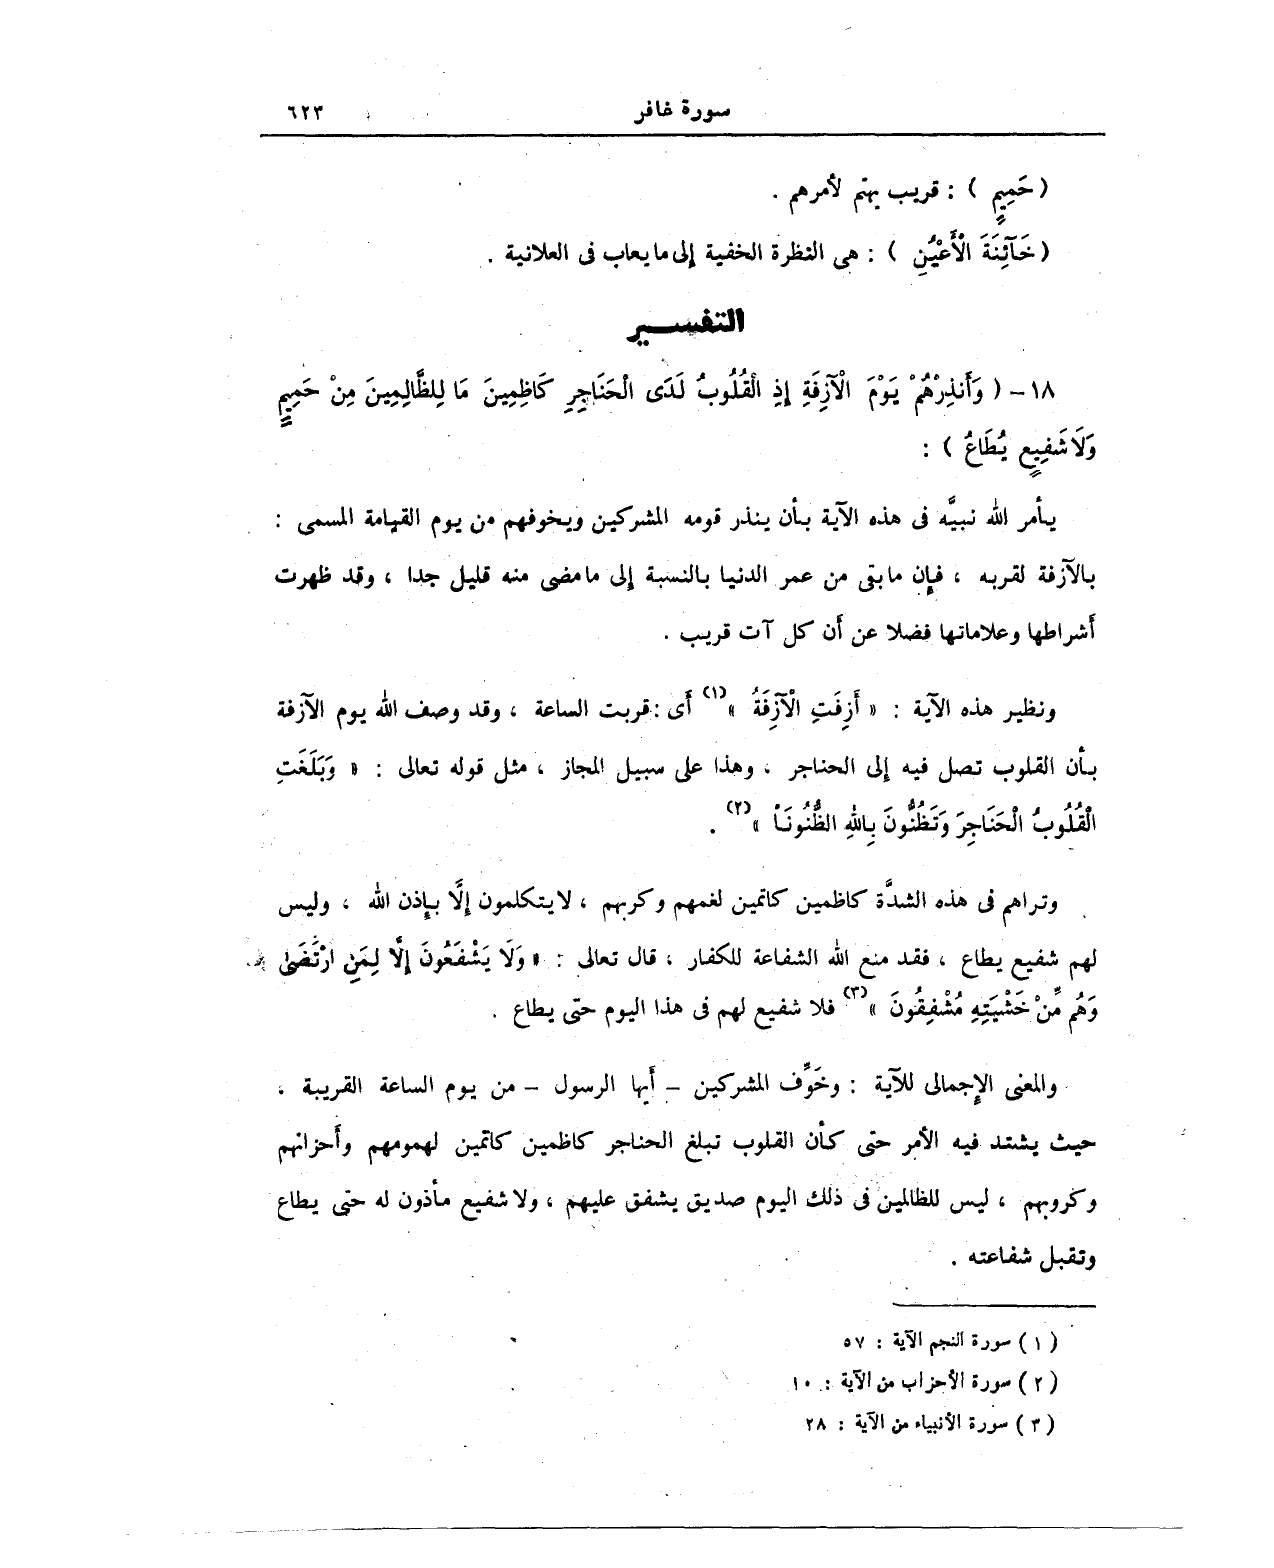 سورة غافر ٦٢٣
( حَمِيمٍ ) : قريب يهتم لأمرهم .
( خَآئِنَةَ الْأَعْيُنِ ) : هى النظرة الخفية إلى ما يعاب فى العلانية .
التفسير
١٨ – ( وَأَنذِرْهُمْ يَوْمَ الْآزِفَةِ إِذِ الْقُلُوبُ لَدَى الْحَنَاجِرِ كَاظِمِينَ مَا لِلظَّالِمِينَ مِنْ حَمِيمٍ
وَلَا شَفِيعٍ يُطَاعُ ) :
يأمر الله نبيَّه فى هذه الآية بأن ينذر قومه المشركين ويخوفهم من يوم القيامة المسمى :
بالآزفة لقربه ، فإن ما بقى من عمر الدنيا بالنسبة إلى ما مضى منه قليل جدا ، وقد ظهرت
أشراطها وعلاماتها فضلا عن أن كل آت قريب .
ونظير هذه الآية : « أَزِفَتِ الْآزِفَةُ »(١) أى : قربت الساعة ، وقد وصف الله يوم الآزفة
بأن القلوب تصل فيه إلى الحناجر ، وهذا على سبيل المجاز ، مثل قوله تعالى : « وَبَلَغَتِ
الْقُلُوبُ الْحَنَاجِرَ وَتَظُنُّونَ بِاللهِ الظُّنُونَا »(٢) .
وتراهم فى هذه الشدَّة كاظمين كاتمين لغمهم وكربهم ، لا يتكلمون إلَّا بإذن الله ، وليس
لهم شفيع يطاع ، فقد منع الله الشفاعة للكفار ، قال تعالى : « وَلَا يَشْفَعُونَ إِلَّا لِمَنِ ارْتَضَىٰ
وَهُم مِّنْ خَشْيَتِهِ مُشْفِقُونَ »(٣) فلا شفيع لهم فى هذا اليوم حتى يطاع .
والمعنى الإجمالى للآية : وخَوِّف المشركين – أيها الرسول – من يوم الساعة القريبة ،
حيث يشتد فيه الأمر حتى كأن القلوب تبلغ الحناجر كاظمين كاتمين لهمومهم وأحزانهم
وكروبهم ، ليس للظالمين فى ذلك اليوم صديق يشفق عليهم ، ولا شفيع مأذون له حتى يطاع
وتقبل شفاعته .
( ١ ) سورة النجم الآية : ٥٧
( ٢ ) سورة الأحزاب من الآية : ١٠
( ٣ ) سورة الأنبياء من الآية : ٢٨